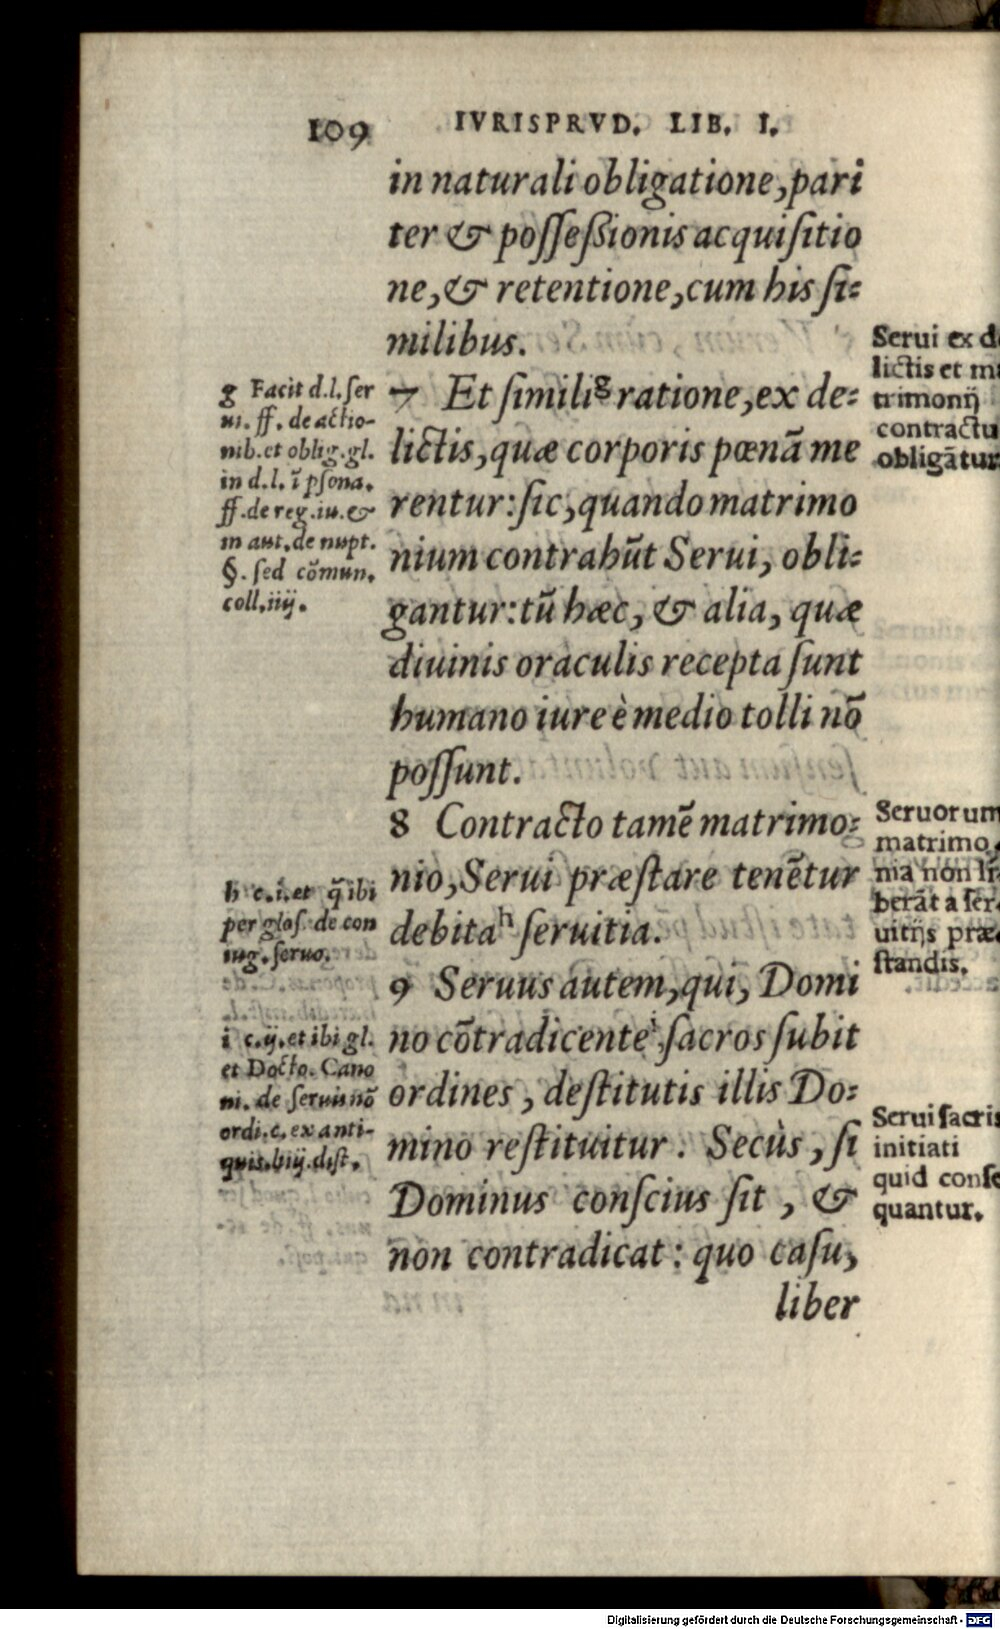 109 IVRISPRVD. LIB. I.
in naturali obligatione, pari
ter & possessionis acquisitio
ne, & retentione, cum his si-
milibus.
7 Et simili g ratione, ex de-
lictis, quæ corporis pœnā me
rentur: sic, quando matrimo
nium contrahūt Serui, obli-
gantur: tū hæc, & alia, quæ
diuinis oraculis recepta sunt
humano iure è medio tolli nō
possunt.
8 Contracto tamē matrimo-
nio, Serui præstare tenētur
debita h seruitia.
9 Seruus autem, qui, Domi
no cōtradicente i sacros subit
ordines, destitutis illis Do-
mino restituitur. Secùs, si
Dominus conscius sit, &
non contradicat: quo casu,
liber
g Facit d.l. ser
ui. ff. de actio-
nib. et oblig. gl.
in d.l. ī psona.
ff. de reg. iu. &
in aut. de nupt.
§. sed cōmun.
coll. iiij.
h c. i. et q̄ ibi
per glos. de con
iug. seruo.
i c. ij. et ibi gl.
et Docto. Cano
ni. de seruis nō
ordi. c. ex anti-
quis. liiij. dist.
Serui ex de
lictis et ma
trimonij
contractu
obligātur
Seruorum
matrimo
nia non li-
berāt a ser-
uitijs præ-
standis.
Serui sacris
initiati
quid conse
quantur.
Digitalisierung gefördert durch die Deutsche Forschungsgemeinschaft - DFG